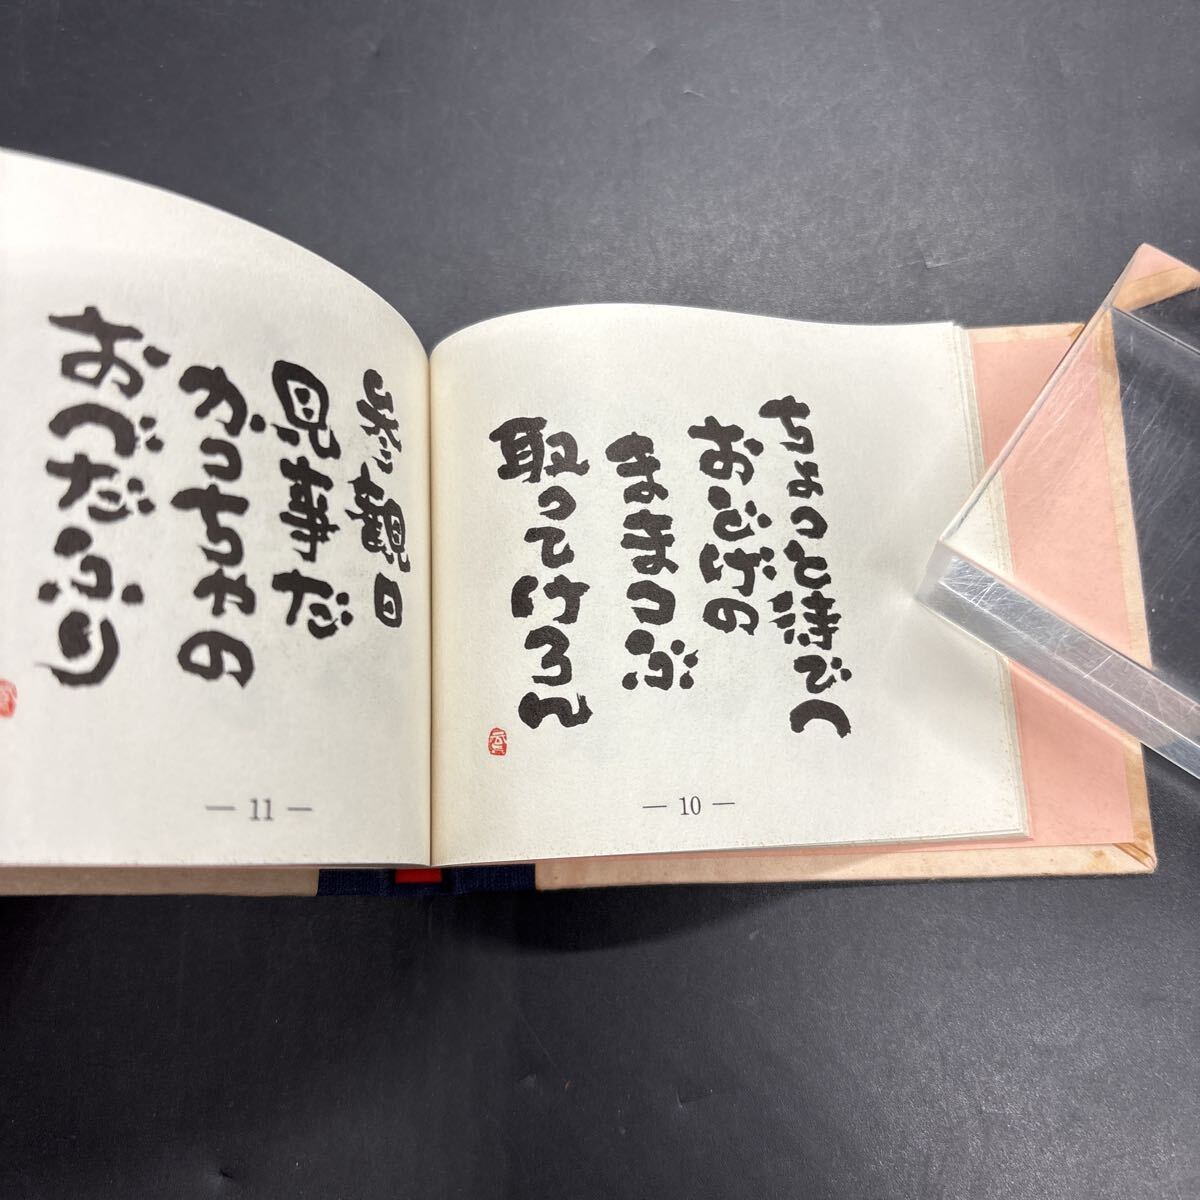 ちょっと待で
おどげの
ままつぶ
取ってけろん
— 10 —
参観日
見事だ
がっちゃの
おべだふり
— 11 —